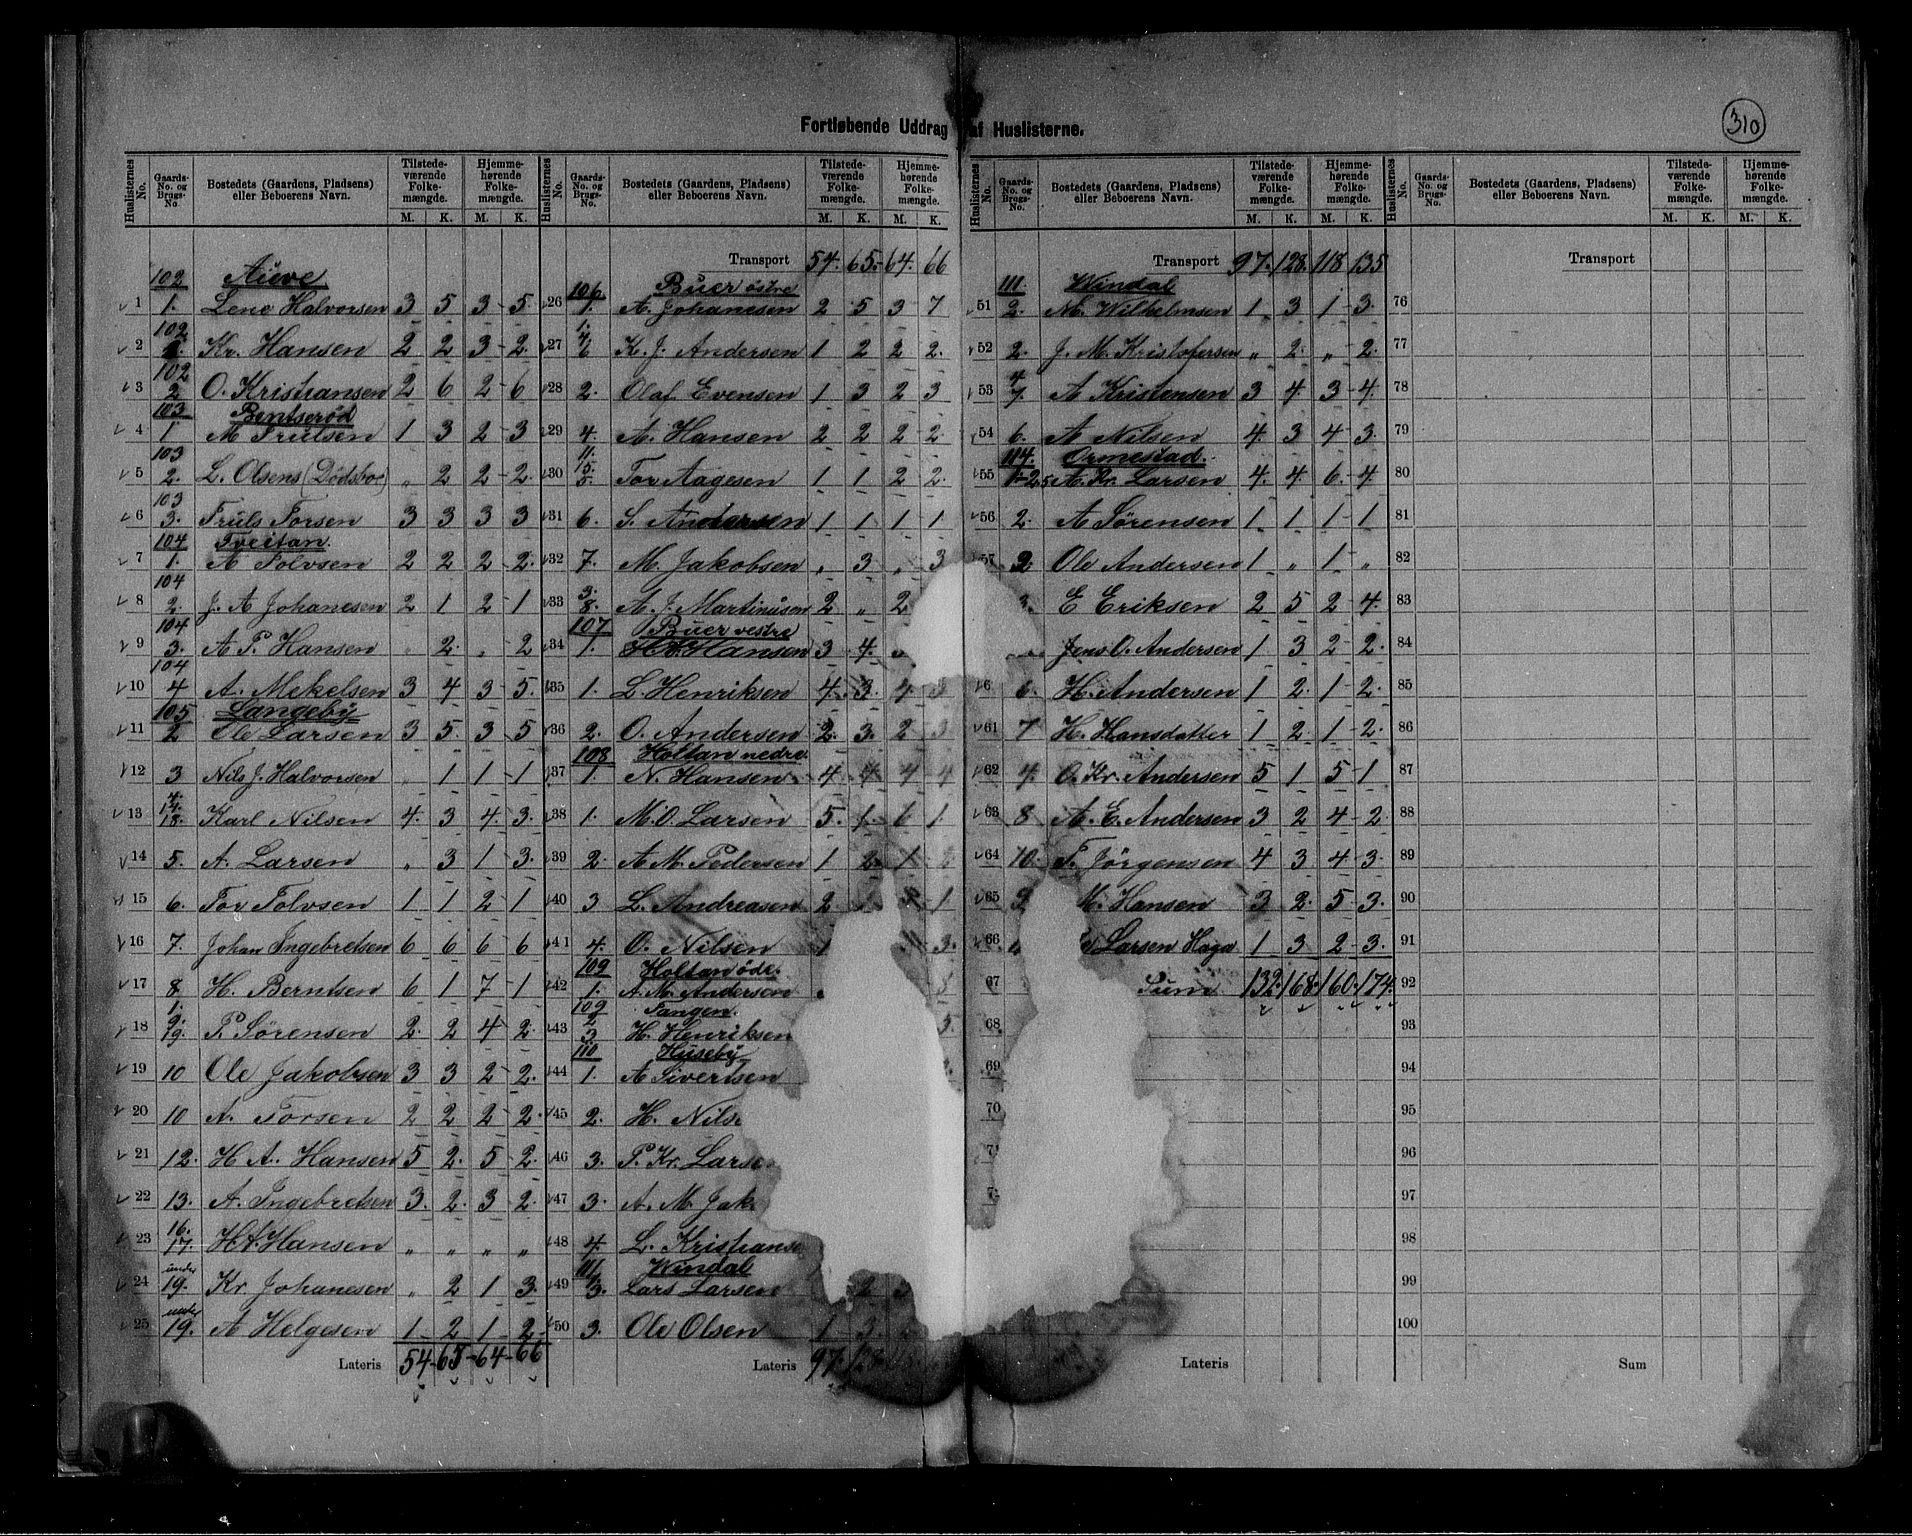 Fortløbende Uddrag af Huslisterne.
310
Huslisternes No. Gaards-No. og Brugs-No. Bostedets (Gaardens, Pladsens) eller Beboerens Navn. Tilstedeværende Folkemængde. M. K. Hjemmehørende Folkemængde. M. K.
102 Auve
1 1. Lene Halvorsen 3 5 3 5.
102
2 Kr. Hansen 2 2 3 2.
102
3 2 O. Kristiansen 2 6 2 6
103 Bentserød
4 1 M Trulsen 1 3 2 3
103
5 2. L. Olsens (Dødsbo) „ 2 2 2
103
6 3. Truls Torsen 3 3 3 3
104 Tveitan
7 1. A Tolvsen 2 2 2 2.
104
8 2. J. A Johanesen 2 1 2 1
104
9 3. A P. Hansen „ 2. „ 2
104
10 4 A. Mekelsen 3 4 3 5.
105 Langeby
11 2 Ole Larsen 3 5 3 5
12 3 Nils J. Halvorsen „ 1 1 1
4. 14.
13 18. Karl Nilsen 4. 3 4. 3.
14 5. A. Larsen „ 3 1 3.
15 6. Tor Tolvsen 1 1 2 1
16 7. Johan Ingebretsen 6 6 6 6
17 8. H. Berntsen 6 1 7 1
1. 9.
18 19. P. Sørensen 2. 2 4 2.
19 10 Ole Jakobsen 3 3 2 2.
20 10 A. Torsen 2 2 2 2.
21 12. H A. Hansen 5 2. 5 2.
22 13. A. Ingebretsen 3. 2. 3 2.
16.
23 17. H. A. Hansen „ „ „ „
under
24 19. Kr. Johanesen „ 2 1 3.
under
25 19. A Helgesen 1 2 1 2
Lateris 54 65 64 66
Huslisternes No. Gaards-No. og Brugs-No. Bostedets (Gaardens, Pladsens) eller Beboerens Navn. Tilstedeværende Folkemængde. M. K. Hjemmehørende Folkemængde. M. K.
Transport 54. 65. 64. 66
106 Buer østre
26 1. A. Johanesen 2 5 3 7
1. 4.
27 6 K. J. Andersen 1 2 2 2.
28 2. Olaf Evensen 1 3 2 3
29 4. A. Hansen 2 2 2 2.
11. 15.
30 5. Tor Aagesen 1 1 2 2.
31 6. S. Andersen 1 1 1 1
32 7. M. Jakobsen „ 3 „ 3
3.
33 8. A. J. Martinusen 2 „ 2
107 Buer vestre
34 1. H. A. Hansen 3 4.
35 1. L Henriksen 4. 3. 4 3
36 2. O. Andersen 2. 3. 2 3
108 Holtan nedre
37 1. N. Hansen 4 4 4 4
38 1. M. O. Larsen 5. 1. 6 1.
39 2. A M. Pedersen 1 2. 1
40 3 L. Andreasen 2 1
41 4. O. Nilsen 1 3.
109 Holtan øde.
42 1. A. M. Andersen
109 Tangen.
2
43 3. H. Henriksen 3.
110 Huseby
44 1. A Sivertsen
45 2. H. Nils
46 3. P. Kr. Larse
47 3. A. M. Jak
48 4. L. Kristians
111 Windal
49 3. Lars Larsen 2
50 3. Ole Olsen 1 3
Lateris 97 128
Huslisternes No. Gaards-No. og Brugs-No. Bostedets (Gaardens, Pladsens) eller Beboerens Navn. Tilstedeværende Folkemængde. M. K. Hjemmehørende Folkemængde. M. K.
Transport 97. 128. 118 135
111. Windal
51 2. M. Wilhelmsen 1 3 1 3.
52 2. J. M. Kristofersen „ 2. „ 2.
4
53 7. A Kristensen 3 4. 3 4.
54 6. A Nilsen 4. 3 4 3.
114. Ormestad.
55 1-2,5 A. Kr. Larsen 4. 4. 6 4.
56 2. A Sørensen 1 1 1 1
57 2 Ole Andersen 1 „ 1 „
3. E Eriksen 2 5 2 4.
Jens O. Andersen 1 3 2 2.
6 6. H. Andersen 1 2. 1 2.
61 7 H. Hansdatter 1 2 1 2.
62 4. O. Kr. Andersen 5 1 5 1
63 8 A. E. Andersen 3 2 4 2.
64 10. T. Jørgensen 4 3 4 3.
65 M. Hansen 3 2. 5 3.
66 Larsen Haga 1 3 2 3.
67 Sum 132. 168. 160. 174.
68
69
70
Lateris
Huslisternes No. Gaards-No. og Brugs-No. Bostedets (Gaardens, Pladsens) eller Beboerens Navn. Tilstedeværende Folkemængde. M. K. Hjemmehørende Folkemængde. M. K.
Transport
76
77
78
79
80
81
82
83
84
85
86
87
88
89
90
91
92
93
94
95
96
97
98
99
100
Sum